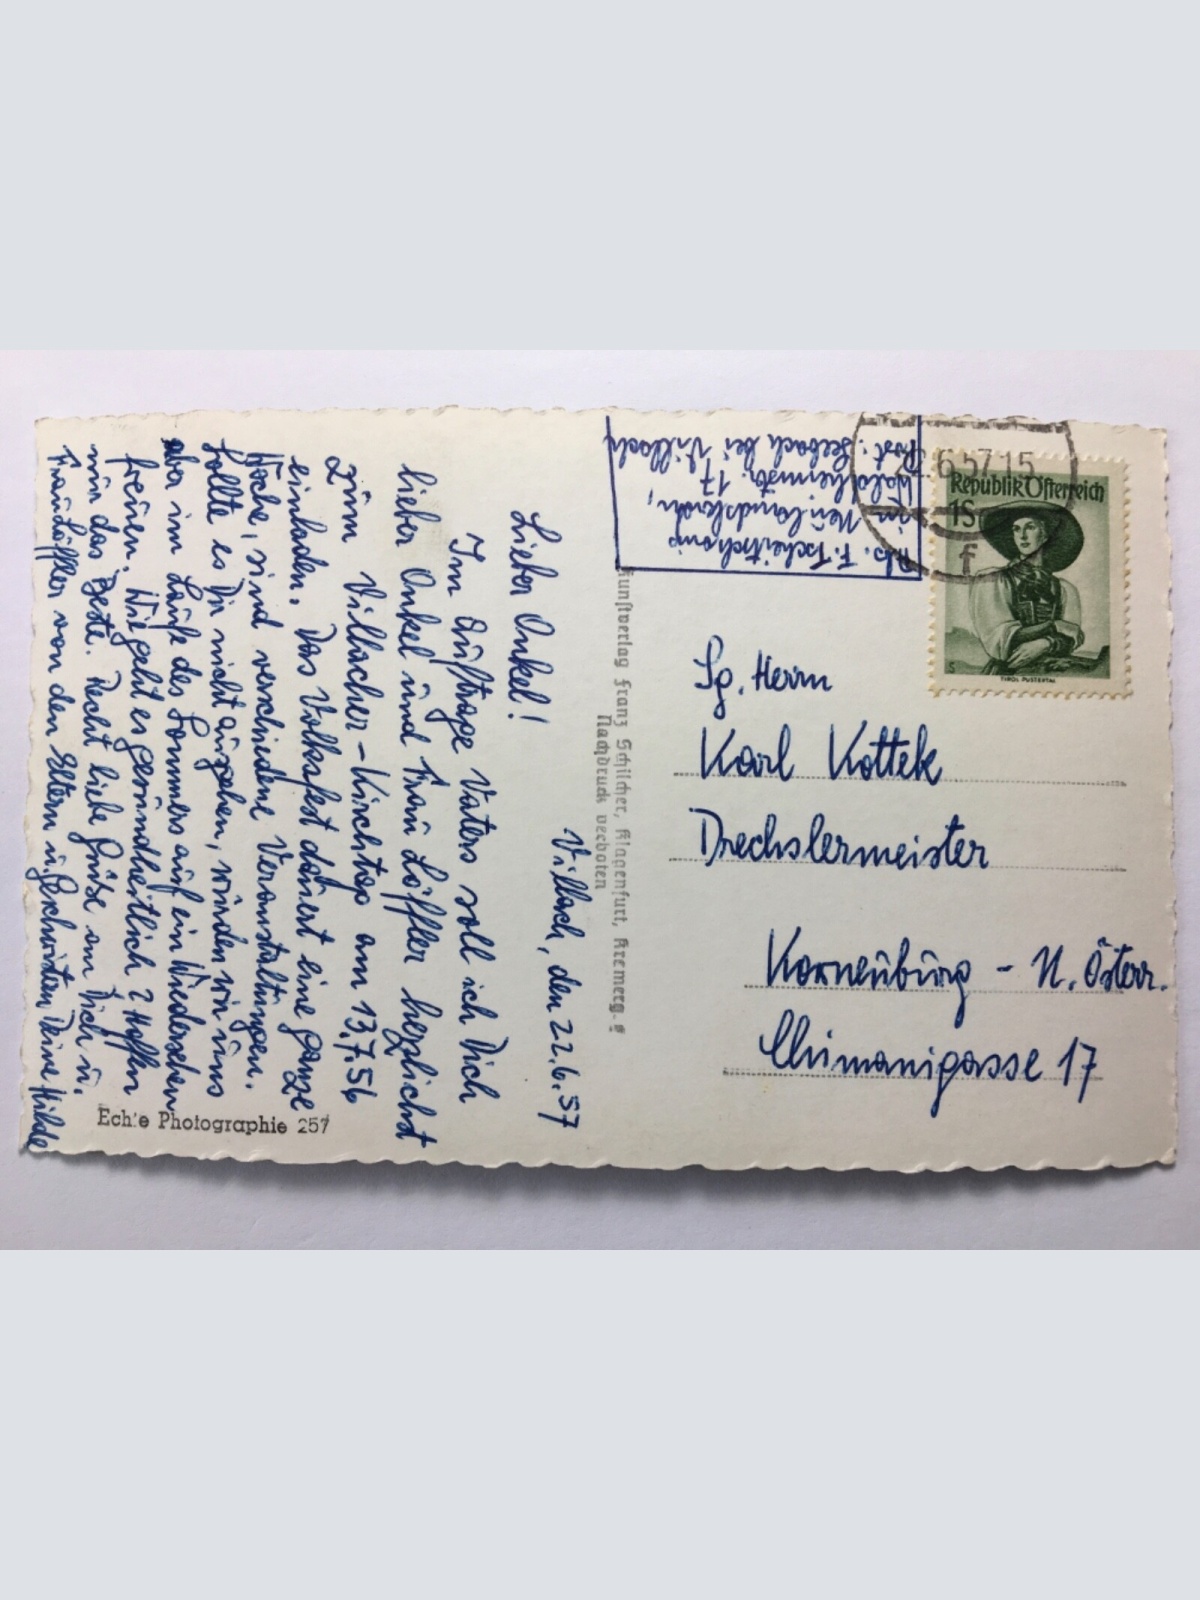 Villach, den 22.6.57
Lieber Onkel!
Im Auftrage Vaters soll ich Dich
lieber Onkel und Frau Löffler herzlichst
zum Villacher-Kirchtag am 13.7.56
einladen. Das Volksfest dauert eine ganze
Woche, sind verschiedene Veranstaltungen.
Sollte es Dir nicht ausgehen, würden wir uns
aber im Laufe des Sommers auf ein Wiedersehen
freuen. Wie geht es gesundheitlich? Hoffen
nur das Beste. Recht liebe Grüße an Dich u.
Frau Löffler von den Eltern u. Geschwistern Deine Hilde
Echte Photographie 257
Kunstverlag Franz Schilcher, Klagenfurt, Kremerg.
Nachdruck verboten
Abs. F. Tscheitschonig
in Neulandskron,
Waldheimstr. 17
Post: Seebach bei Villach
6.57.15
f
Republik Österreich
1S
S
TIROL PUSTERTAL
Sg. Herrn
Karl Kottek
Drechslermeister
Korneuburg - N. Österr.
Chimanigasse 17